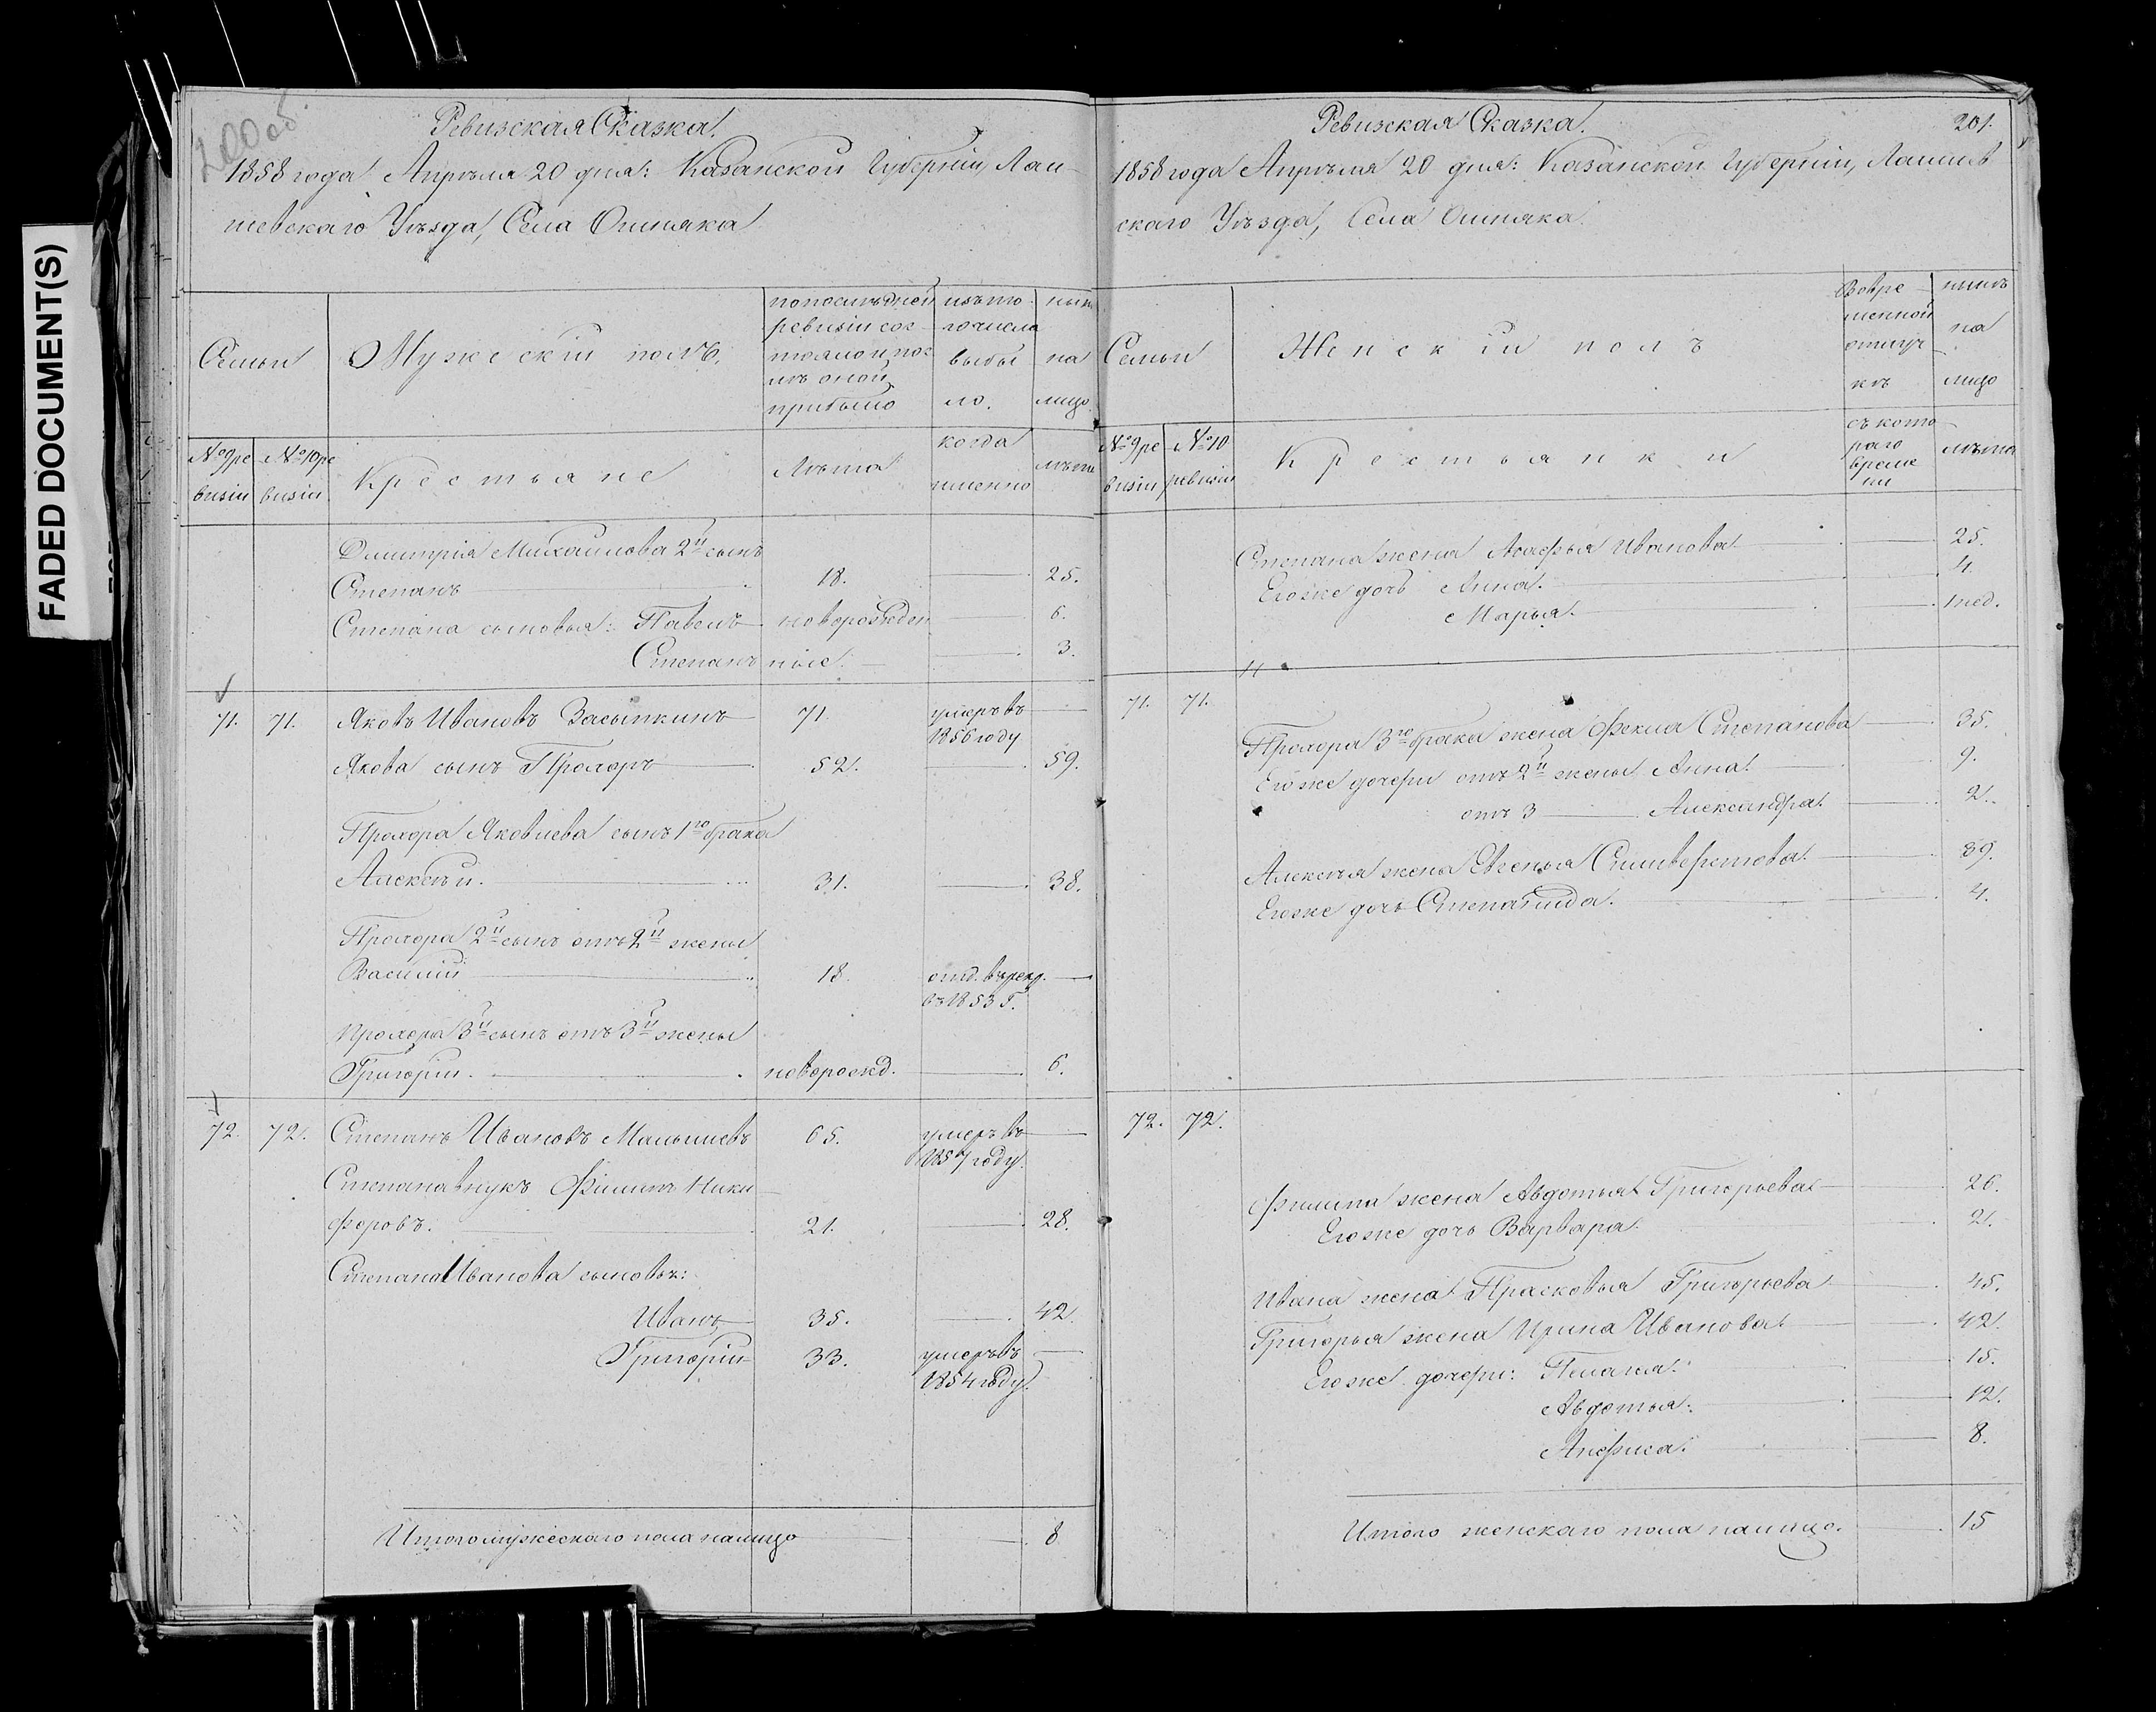 FADED DOCUMENT(S)
200 об.
Ревизская Сказка.
1858 года Апрѣля 20 дня: Казанской Губерніи, Лаи-
шевскаго Уѣзда, Села Ошняка
Семьи
Мужескій полъ.
по послѣдней
ревизіи сос-
тояло и пос-
лѣ оной
прибыло
изъ то-
го числа
выбы
ло.
нынѣ
на
лицо.
№ 9 ре
визіи
№ 10 ре
визіи
Крестьяне
Лѣта
когда
именно
лѣта
Дмитрія Михайлова 2й сынъ
Степанъ 18. 25.
Степана сыновья: Павелъ новорожден 6.
Степанъ ные. 3.
71. 71. Яковъ Ивановъ Засыпкинъ 71. умеръ въ
1856 году
Якова сынъ Прохоръ 52. 59.
Прохора Яковлева сынъ 1го брака
Алексѣй. 31. 38.
Прохора 2й сынъ отъ 2й жены
Василій 18. отд. в рекр.
въ 1853 г.
Прохора 3й сынъ отъ 3й жены
Григорій. новорожд. 6.
72. 72. Степанъ Ивановъ Малышевъ 65. умеръ въ
1857 году.
Степана внукъ Филипъ Ники
форовъ. 21. 28.
Степана Иванова сыновья:
Иванъ 35. 42.
Григорій 33. умеръ въ
1854 году.
Итого мужескаго пола налицо 8
Ревизская Сказка. 201.
1858 года Апрѣля 20 дня: Казанской Губерніи, Лаишев
скаго Уѣзда, Села Ошняка.
Семьи
Женскій полъ
Во вре-
менной
отлуч-
кѣ
нынѣ
на
лицо
№ 9 ре
визіи
№ 10
ревизіи
Крестьянки
съ кото-
раго
време
ни
лѣта
Степана жена Агафья Иванова 25.
Егоже дочь Анна. 4.
Марья. 1 нед.
71. 71.
Прохора 3го брака жена Фекла Степанова 35.
Егоже дочери отъ 2й жены Анна. 9.
отъ 3 Александра. 2.
Алексѣя жена Евгенья Силиверстова. 39.
Егоже дочь Степанида. 4.
72. 72.
Филипа жена Авдотья Григорьева 26.
Егоже дочь Варвара. 2.
Ивана жена Прасковья Григорьева 45.
Григорья жена Ирина Иванова 42.
Егоже дочери: Пелагея. 15.
Авдотья. 12.
Анфиса. 8.
Итого женскаго пола налицо. 15